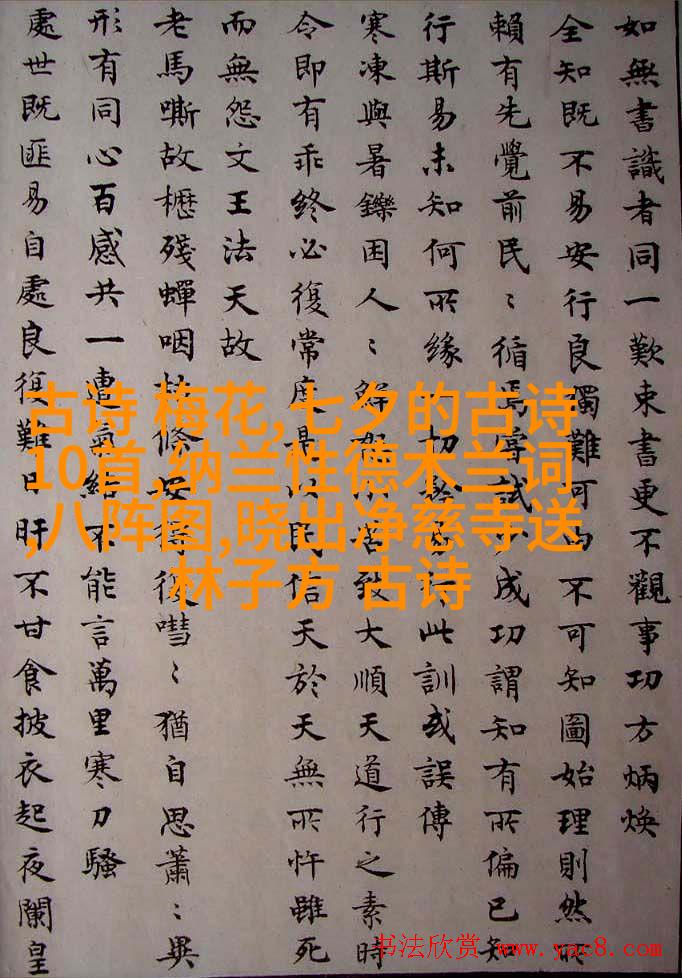 如無書識者同一歎束書更不觀事功方炳煥
全知既不易安行良獨難可不可知圖始理則然所
賴有先覺前民〻循焉嘗試成功謂知有所偏已知
行斯易未知何所緣切此訓或誤傳
寒凍與暑鑠困人〻解致大順天道行之素時
令即有乖終必復常度是以民信天於天無所忤雖死
而無怨文王法天故
老馬嘶故櫪殘蟬咽條安復嘒〻猶自思蕭〻異
形有同心百感共一連氣結不能言萬里寒刀騷
處世既匪易自處良復難日旰不甘食披衣起夜闌皇
古诗 梅花,七夕的古诗
10首,纳兰性德木兰词
,八阵图,晓出净慈寺送
林子方 古诗
书法欣赏 www.yac8.com